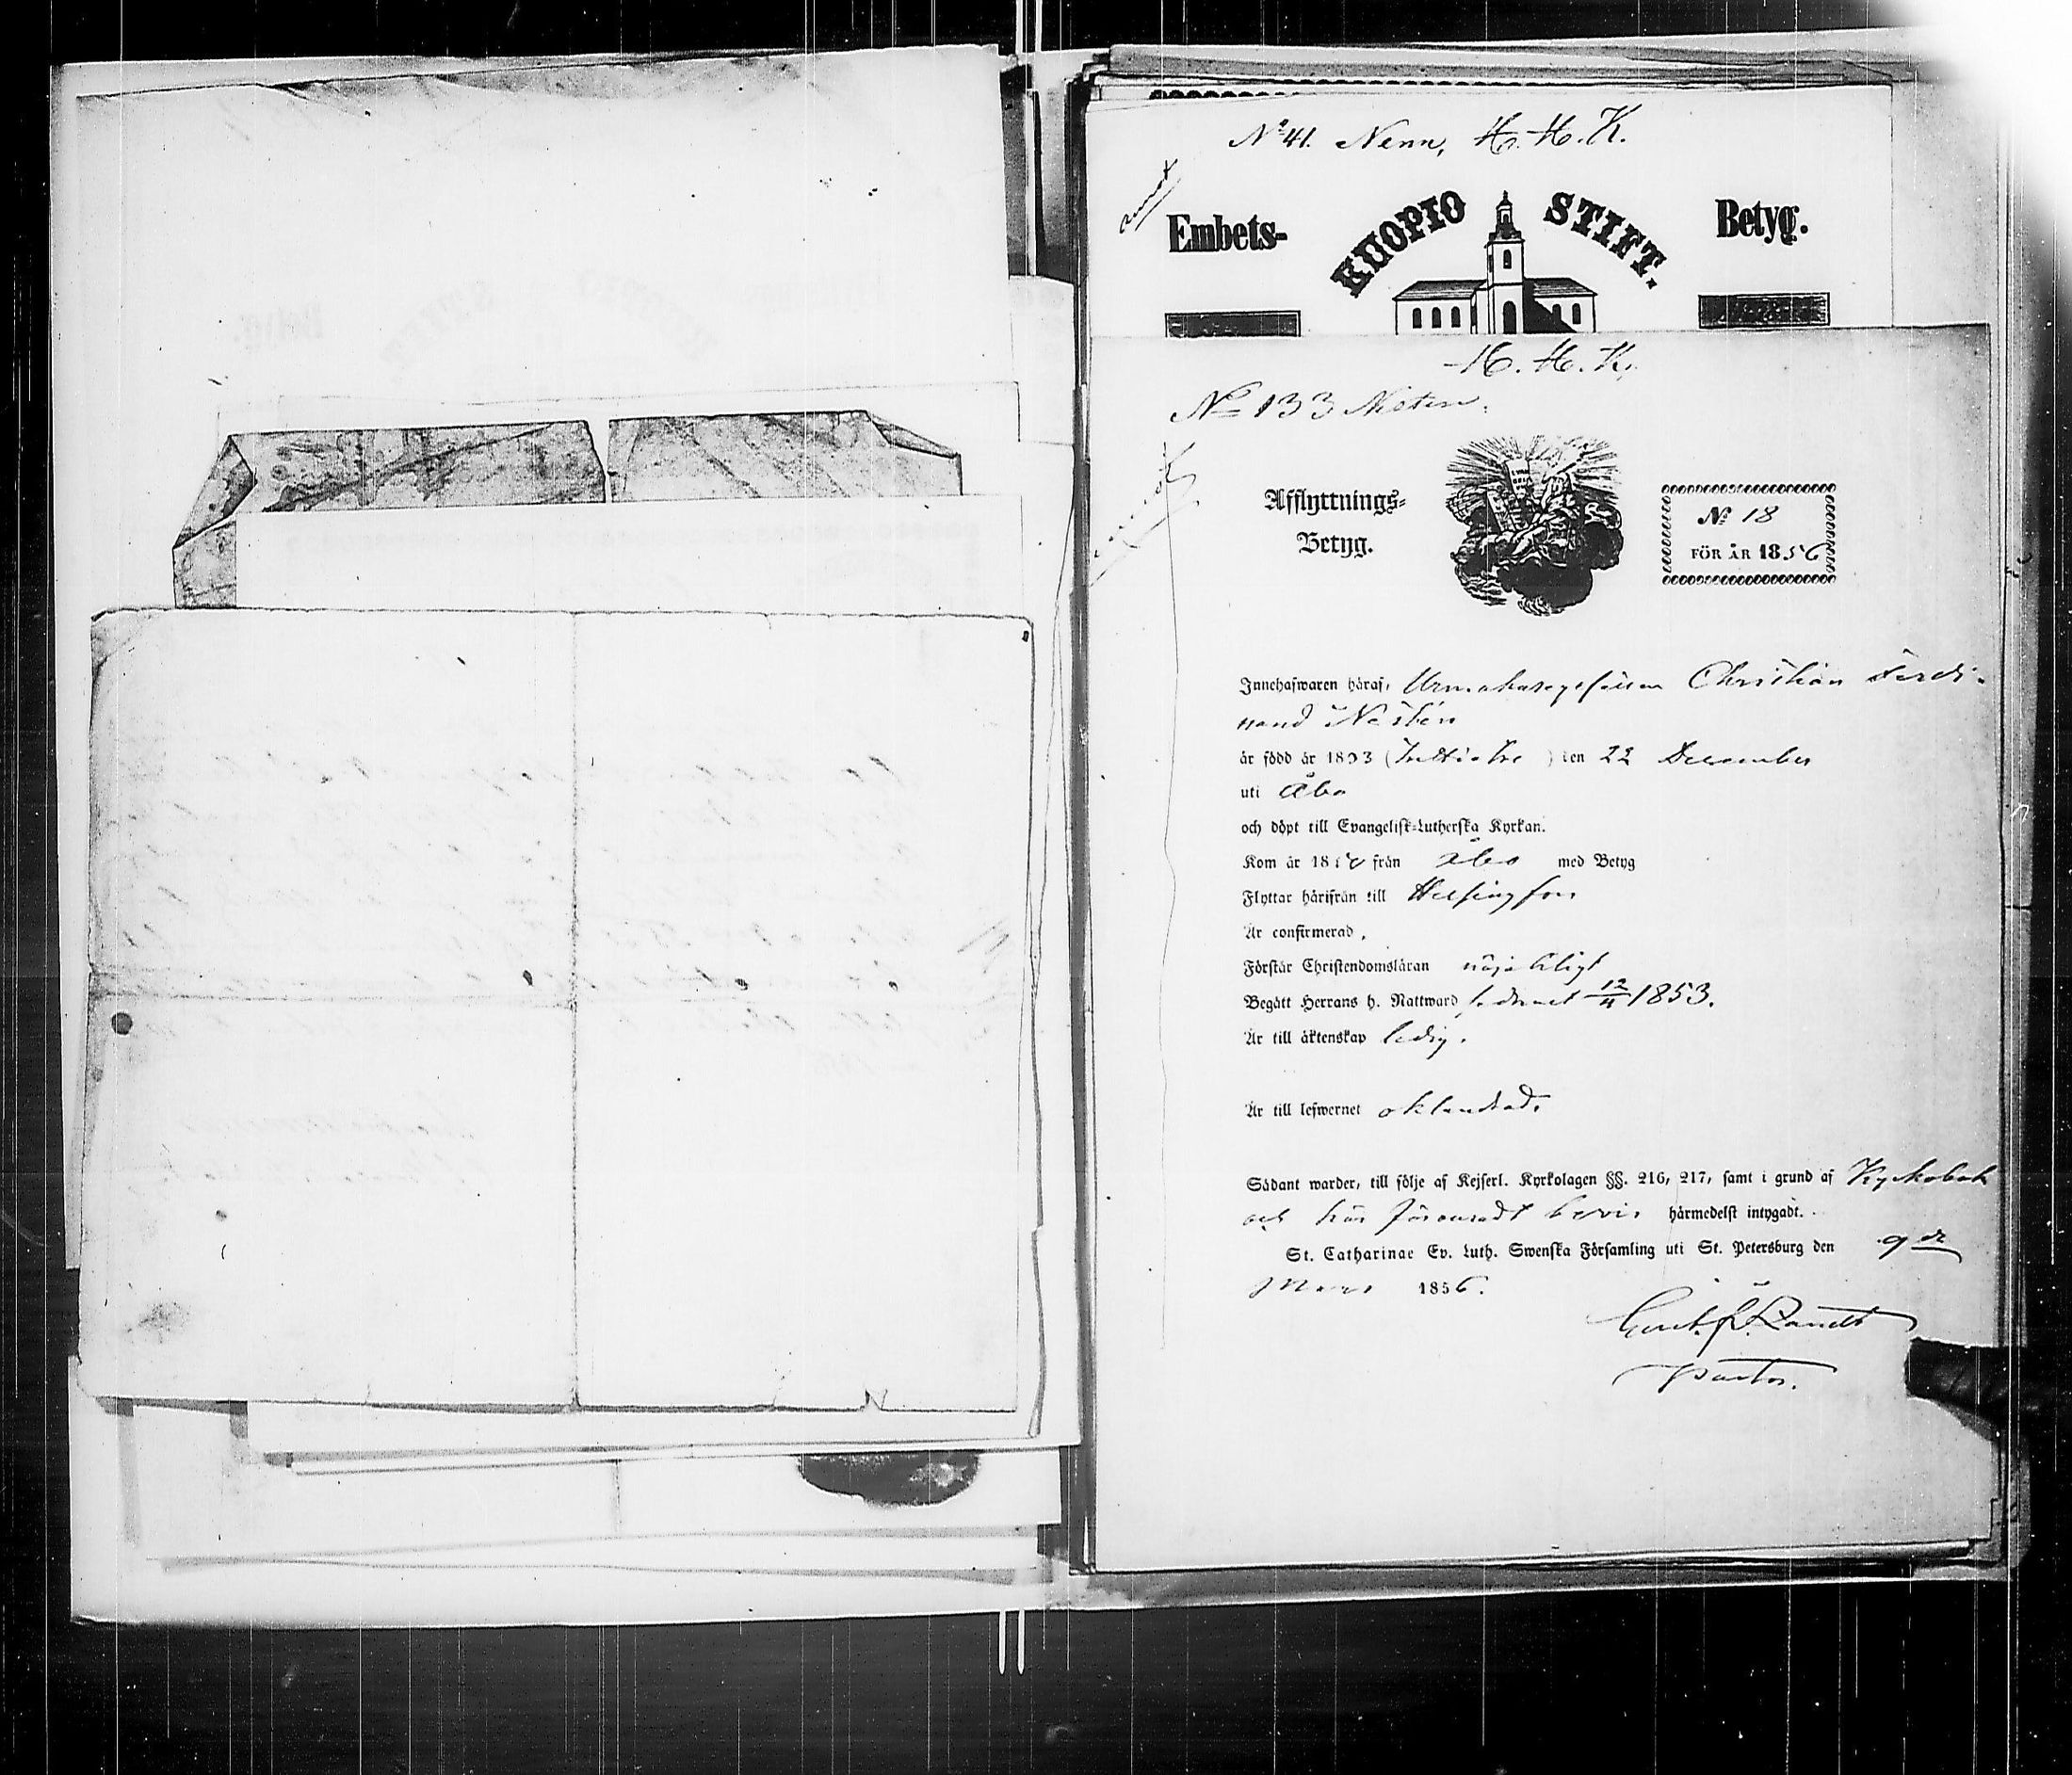 No 41. Nenn, H. H. K.
Embets- KUOPIO STIFT. Betyg.
H. H. K.
No 133 Nestén.
Afflyttnings=
Betyg.
No 18
FÖR ÅR 1856
Innehafwaren häraf, Urmakaregesällen Christian Ferdi-
nand Nestén
är född år 1803 (Tre) den 22 December
uti Åbo
och döpt till Evangelisk=Lutherska Kyrkan.
Kom år 18 från Åbo med Betyg
Flyttar härifrån till Helsingfors
Är confirmerad,
Förstår Christendomsläran nöjaktigt
Begått Herrans h. Nattward sednast 12/4 1853.
Är till äktenskap ledig.
Är till lefwernet oklandrad.
Sådant warder, till följe af Kejserl. Kyrkolagen §§. 216, 217, samt i grund af Kyrkobok
och här förvaradt bevis härmedelst intygadt.
St. Catharinae Ev. Luth. Swenska Församling uti St. Petersburg den 9de
Mars 1856.
Pastor.